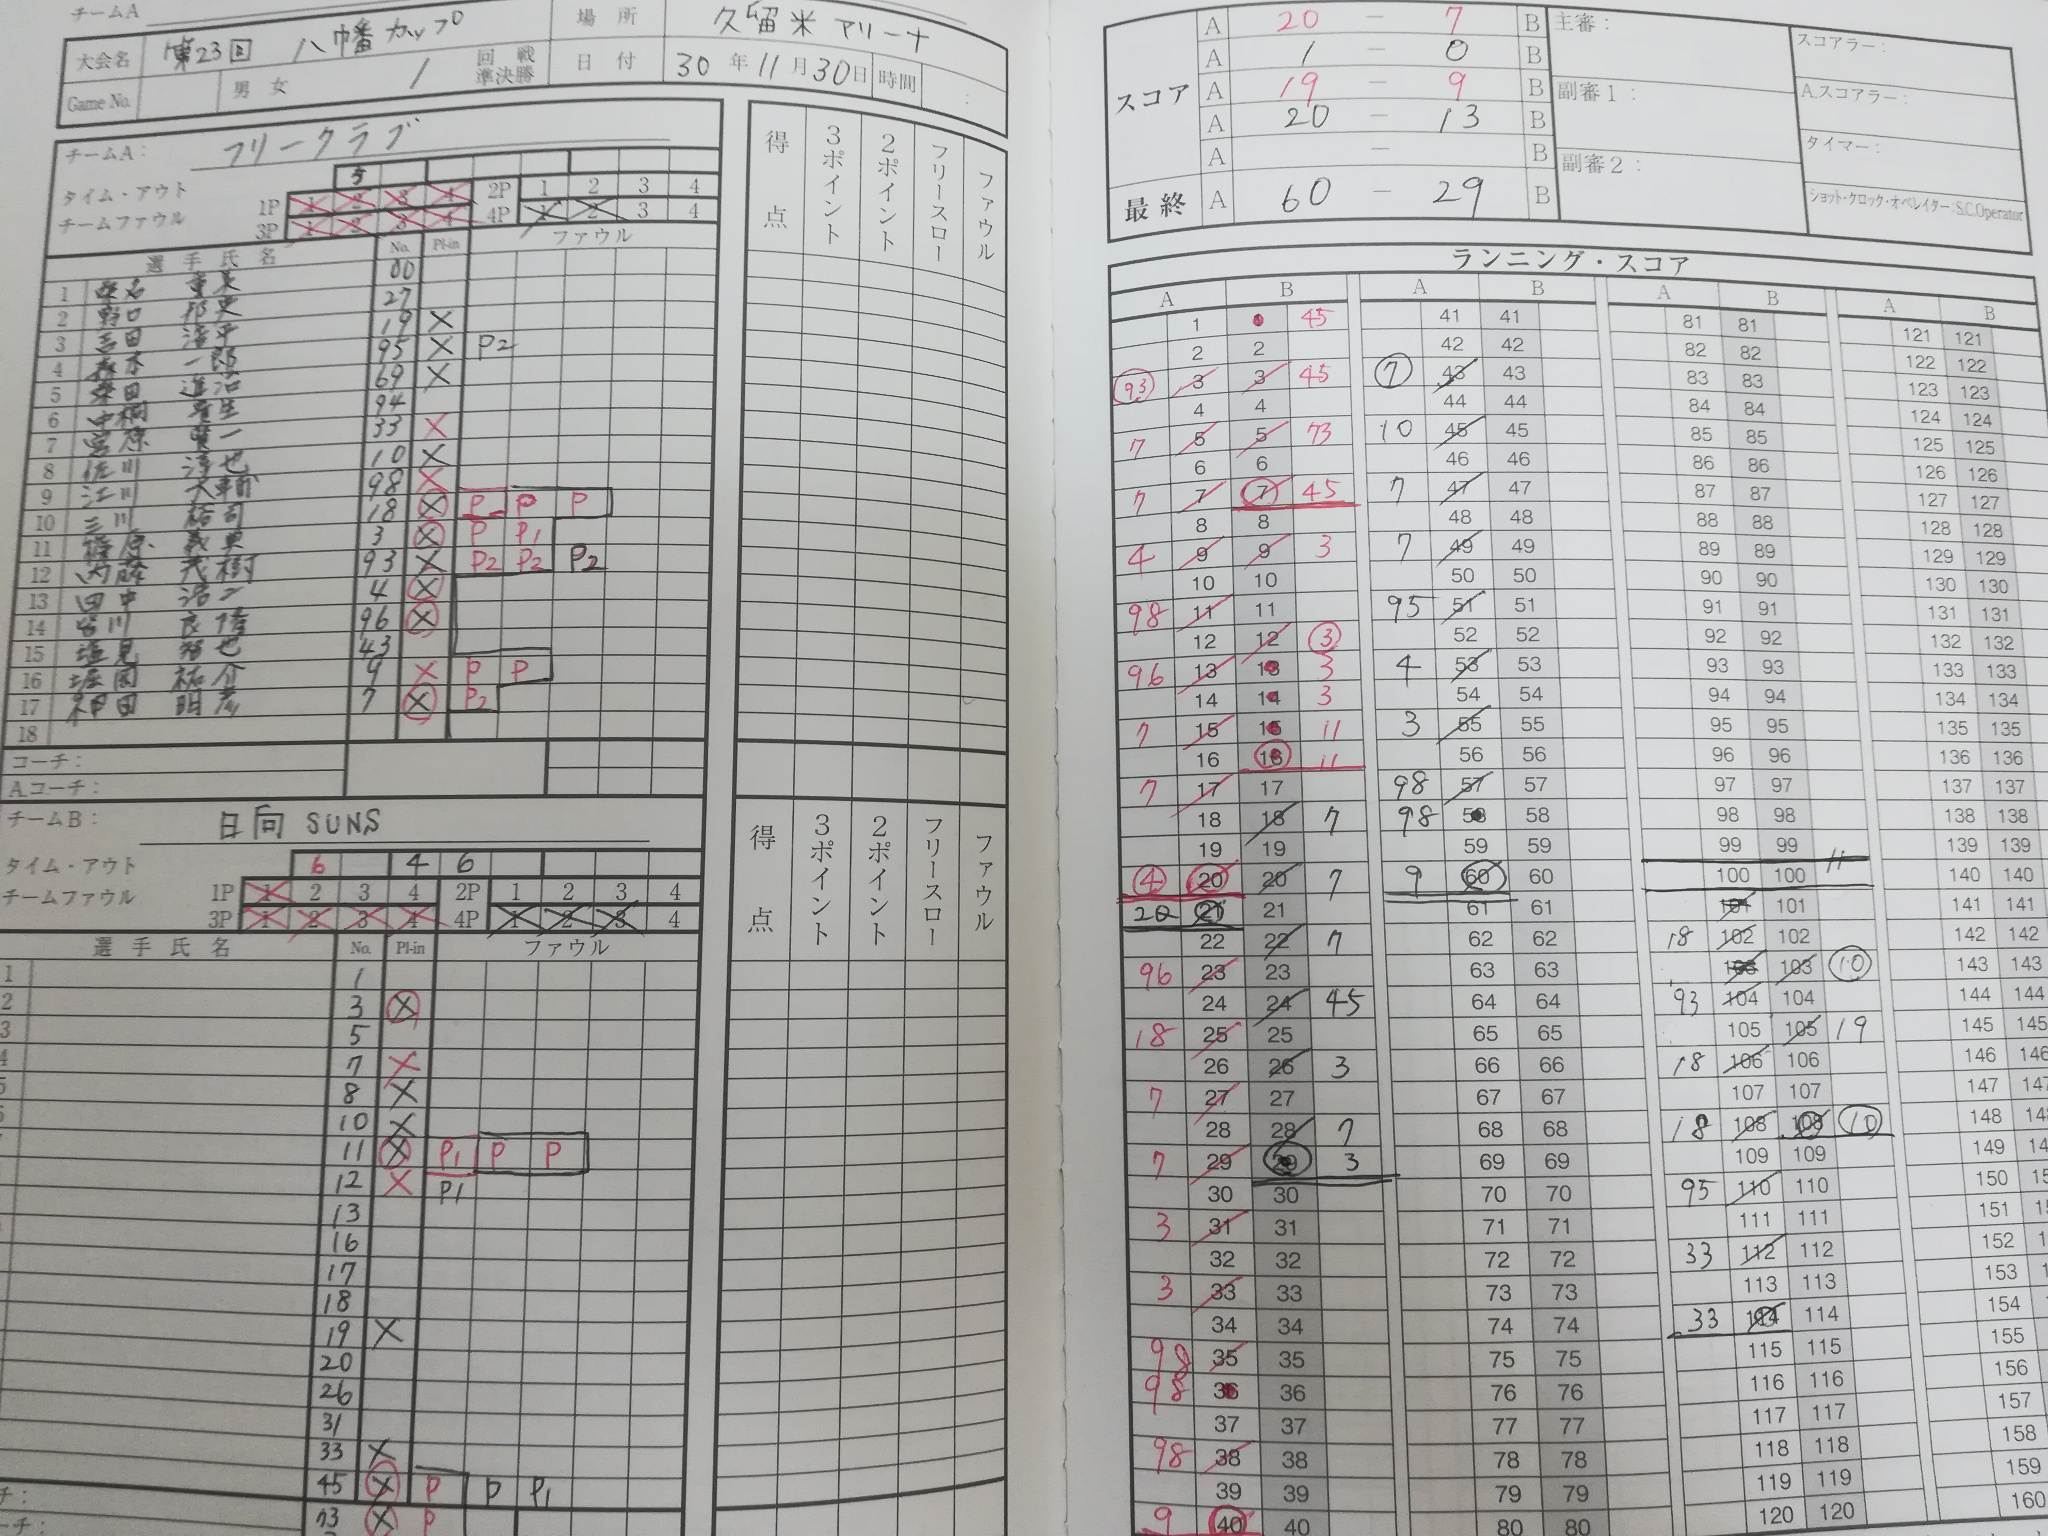 チームA
大会名 第23回 八幡カップ 場所 久留米アリーナ
Game No. 男女 1 回戦 準決勝 日付 30年11月30日 時間 :
チームA: フリークラブ
タイム・アウト 5
チームファウル 1P 1 2 3 4 2P 1 2 3 4
3P 1 2 3 4 4P 1 2 3 4
選手氏名 No. Pl-in ファウル
1 00
2 野口 27
3 吉田 19 X
4 一郎 95 X P2
5 69 X
6 94
7 宮原 賢一 33 X
8 佐川 10 X
9 江川 大輔 98 X
10 三川 裕司 18 X P P P
11 3 X P P1
12 内藤 茂樹 93 X P2 P2 P2
13 田中 浩二 4 X
14 96 X
15 塩見 43
16 祐介 9 X P P
17 神田 明彦 7 X P2
18
コーチ:
A.コーチ:
得点 3ポイント 2ポイント フリースロー ファウル
チームB: 日向 SUNS
タイム・アウト 6 4 6
チームファウル 1P 1 2 3 4 2P 1 2 3 4
3P 1 2 3 4 4P 1 2 3 4
選手氏名 No. Pl-in ファウル
1 1
2 3 X
3 5
4 7 X
5 8 X
6 10 X
11 X P1 P P
12 X P1
13
16
17
18
19 X
20
26
31
33 X
45 X P P P1
73 X P
得点 3ポイント 2ポイント フリースロー ファウル
スコア A 20 - 7 B
A 1 - 0 B
A 19 - 9 B
A 20 - 13 B
A - B
最終 A 60 - 29 B
主審: スコアラー:
副審1: A.スコアラー:
タイマー:
副審2:
ショット・クロック・オペレイター:S.C.Operator
ランニング・スコア
A B A B A B A B
1 1 45 41 41 81 81 121 121
2 2 42 42 82 82 122 122
93 3 3 45 7 43 43 83 83 123 123
4 4 44 44 84 84 124 124
7 5 5 73 10 45 45 85 85 125 125
6 6 46 46 86 86 126 126
7 7 7 45 7 47 47 87 87 127 127
8 8 48 48 88 88 128 128
4 9 9 3 7 49 49 89 89 129 129
10 10 50 50 90 90 130 130
98 11 11 95 51 51 91 91 131 131
12 12 3 52 52 92 92 132 132
96 13 13 3 4 53 53 93 93 133 133
14 14 3 54 54 94 94 134 134
7 15 15 11 3 55 55 95 95 135 135
16 16 11 56 56 96 96 136 136
7 17 17 98 57 57 97 97 137 137
18 18 7 98 58 58 98 98 138 138
19 19 59 59 99 99 139 139
4 20 20 7 9 60 60 100 100 11 140 140
20 21 21 61 61 101 101 141 141
22 22 7 62 62 18 102 102 142 142
96 23 23 63 63 103 103 10 143 143
24 24 45 64 64 93 104 104 144 144
18 25 25 65 65 105 105 19 145 145
26 26 3 66 66 18 106 106 146 146
7 27 27 67 67 107 107 147 147
28 28 7 68 68 18 108 108 10 148 148
7 29 29 3 69 69 109 109 149
30 30 70 70 95 110 110 150
3 31 31 71 71 111 111 151
32 32 72 72 33 112 112 152
3 33 33 73 73 113 113 153
34 34 74 74 33 114 114 154
98 35 35 75 75 115 115 155
98 36 36 76 76 116 116 156
37 37 77 77 117 117 157
98 38 38 78 78 118 118 158
39 39 79 79 119 119 159
9 40 40 80 80 120 120 160